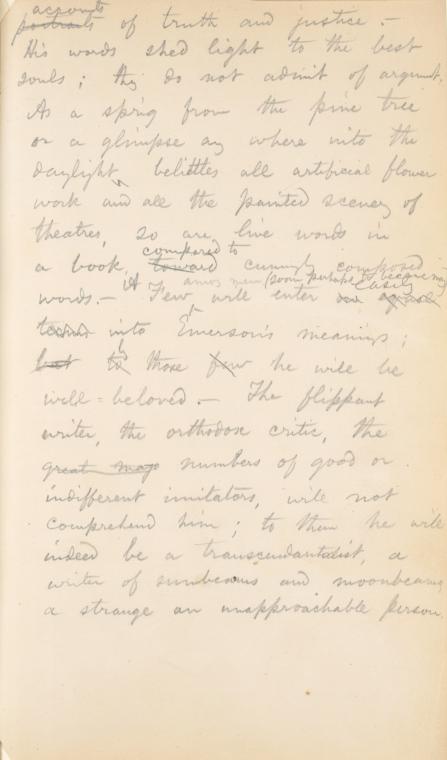 accounts
portraits of truth and justice. —
His words shed light to the best
souls; they do not admit of argument.
As a sprig from the pine tree
or a glimpse any where into the
daylight belittles all artificial flower
work and all the painted scenery of
theatres, so are live words in
compared to
a book, toward cunningly composed
words. — Few will enter
easily
into Emerson's meanings;
but to those few he will be
well-beloved. — The flippant
writer, the orthodox critic, the
great numbers of good or
indifferent imitators, will not
comprehend him; to them he will
indeed be a transcendantalist, a
writer of sunbeams and moonbeams,
a strange an unapproachable person.